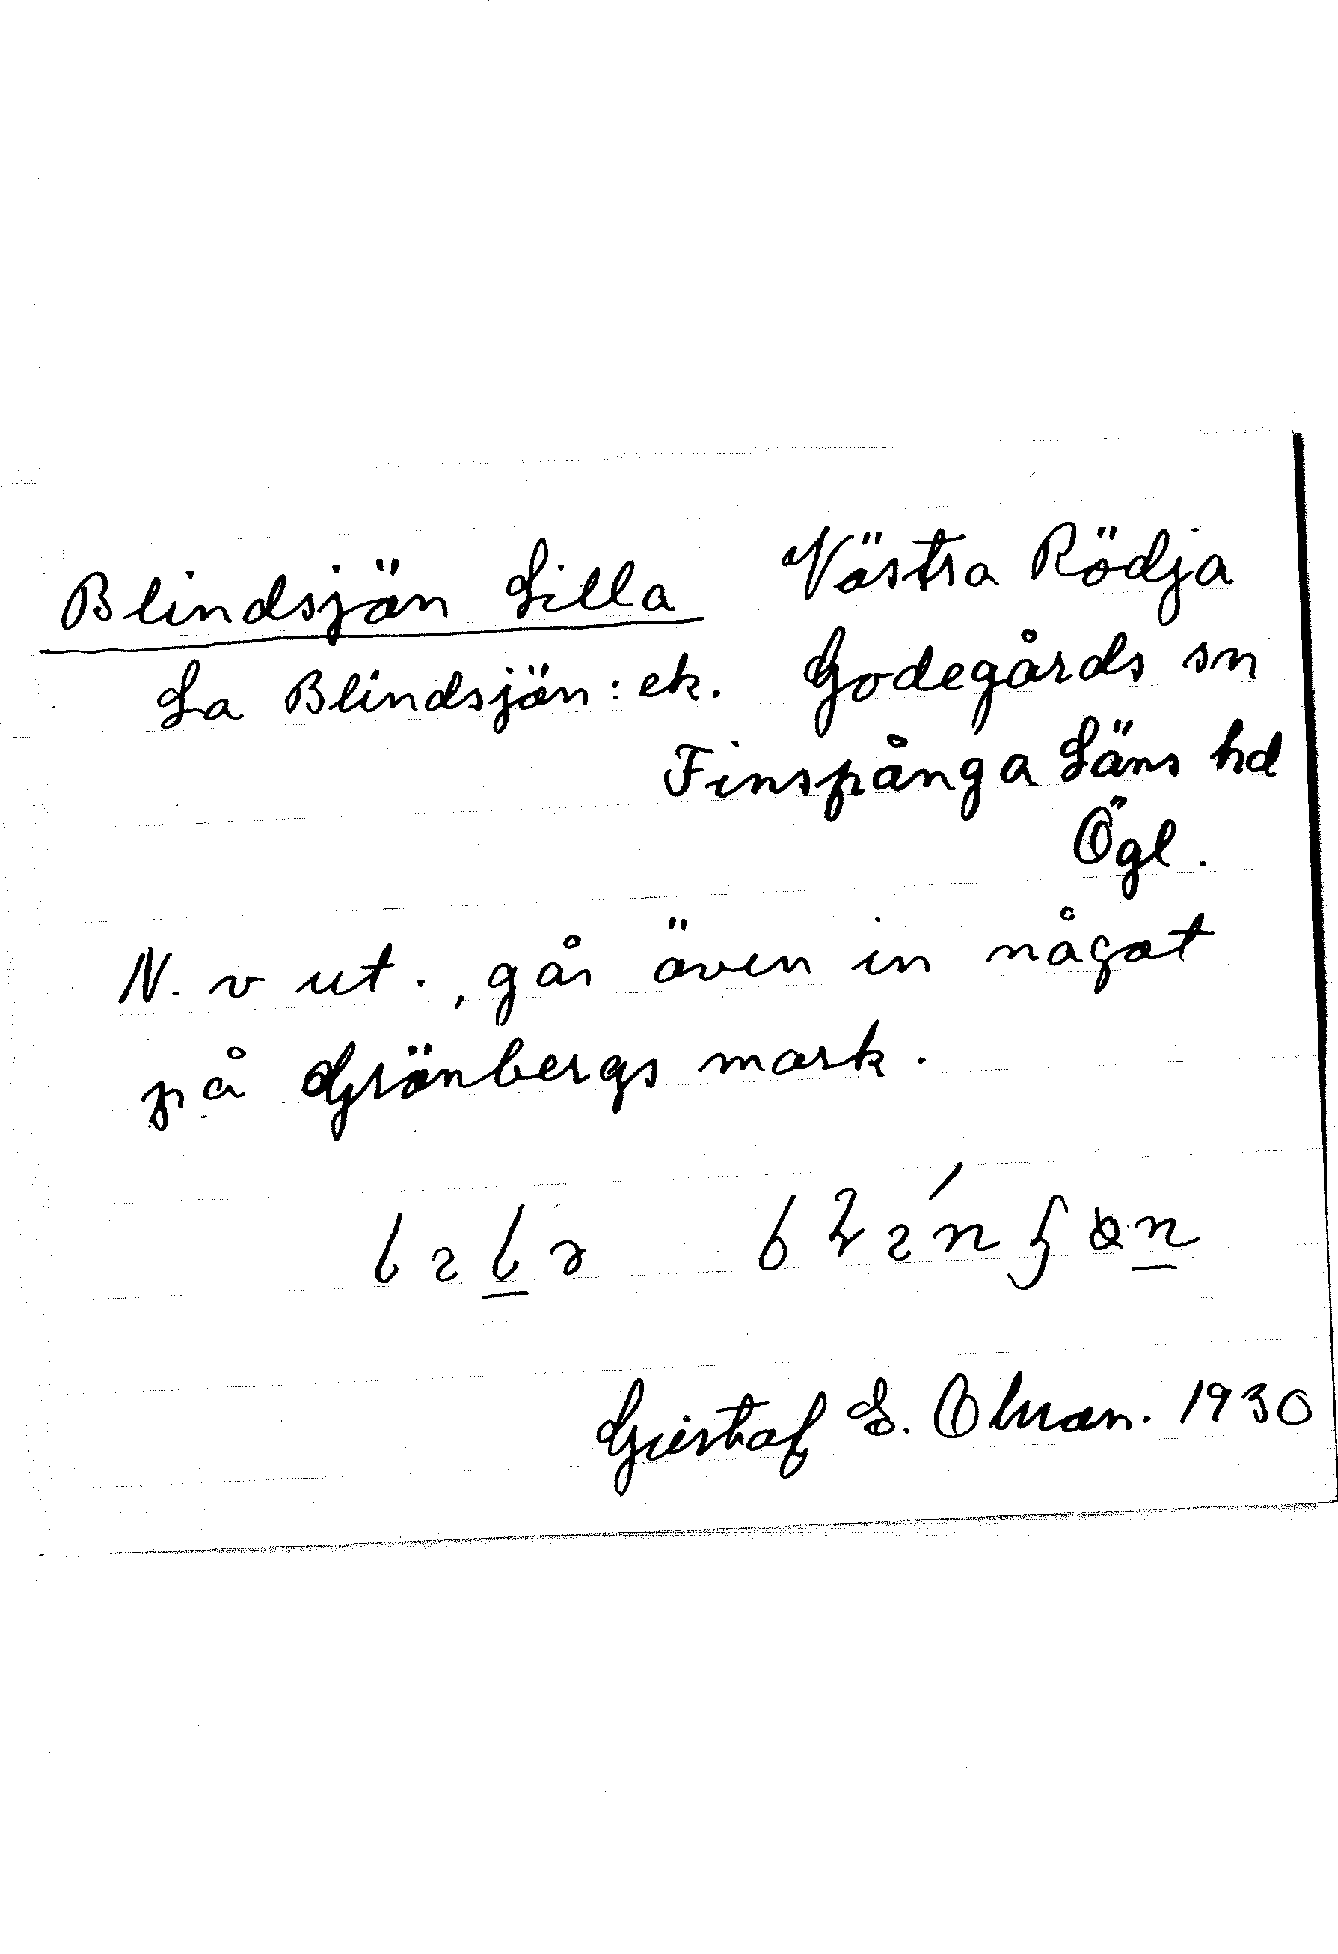 Blindsjön Lilla Västra Rödja
La Blindsjön: ek. Godegårds sn
Finspånga Läns hd
Ögl.
N. v ut., går även in något
på Grönbergs mark.
Gustaf E. 1930